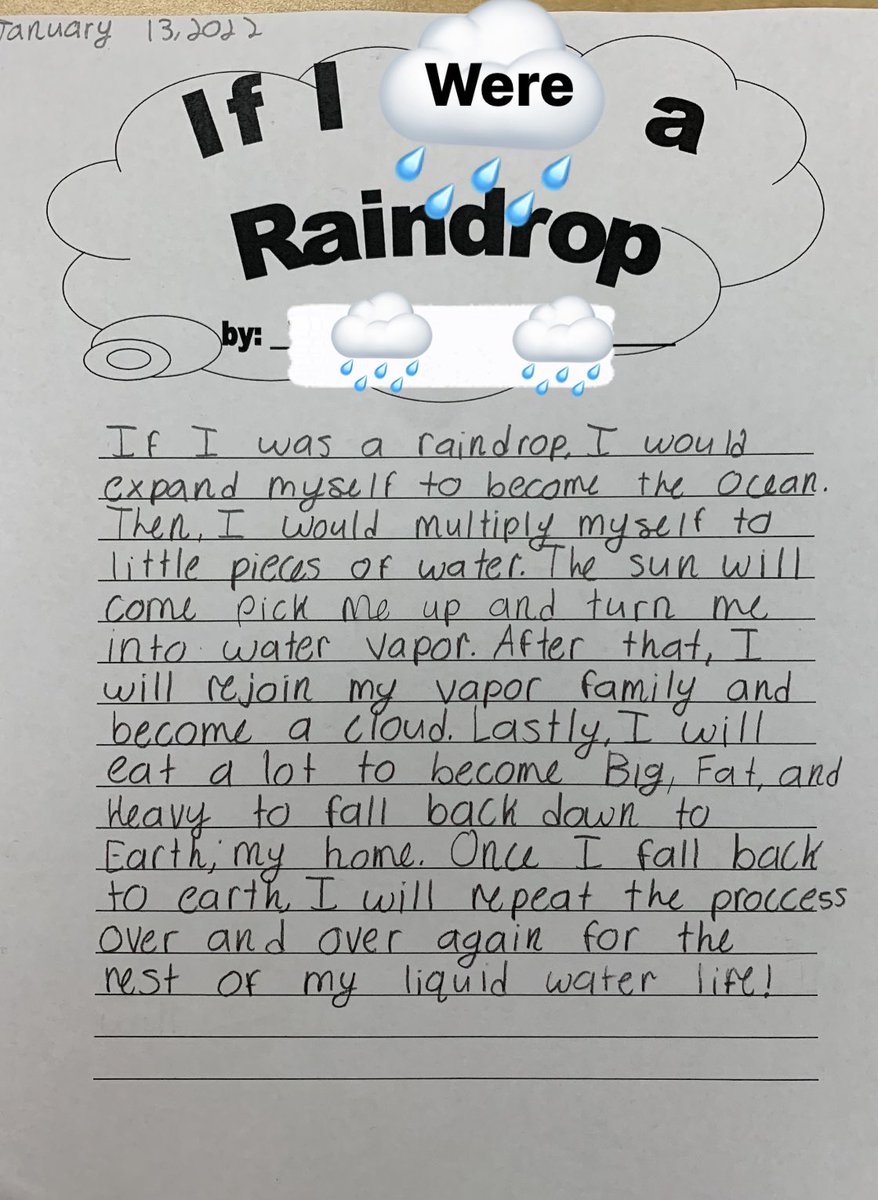 January 13, 2022
If I Were a
Raindrop
by:
If I was a raindrop, I would
expand myself to become the Ocean.
Then, I would multiply myself to
little pieces of water. The sun will
come pick me up and turn me
into water vapor. After that, I
will rejoin my vapor family and
become a cloud. Lastly, I will
eat a lot to become Big, Fat, and
Heavy to fall back down to
Earth, my home. Once I fall back
to earth, I will repeat the proccess
over and over again for the
rest of my liquid water life!